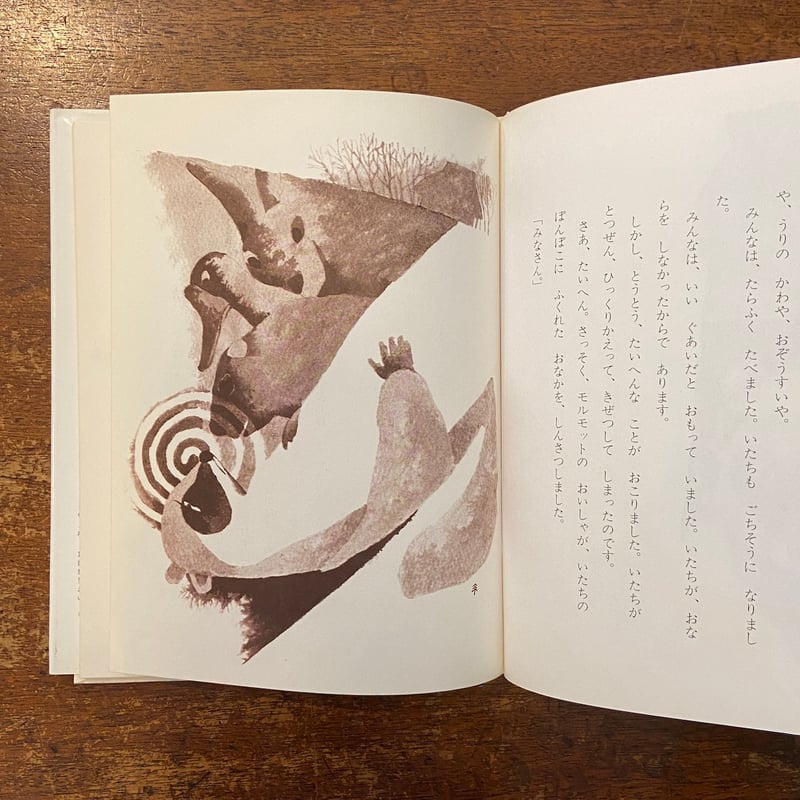 や、うりの　かわや、おぞうすいや。
みんなは、たらふく　たべました。いたちも　ごちそうに　なりまし
た。
みんなは、いい　ぐあいだと　おもって　いました。いたちが、おな
らを　しなかったからで　あります。
しかし、とうとう、たいへんな　ことが　おこりました。いたちが
とつぜん、ひっくりかえって、きぜつして　しまったのです。
さあ、たいへん。さっそく、モルモットの　おいしゃが、いたちの
ぽんぽこに　ふくれた　おなかを、しんさつしました。
「みなさん。」